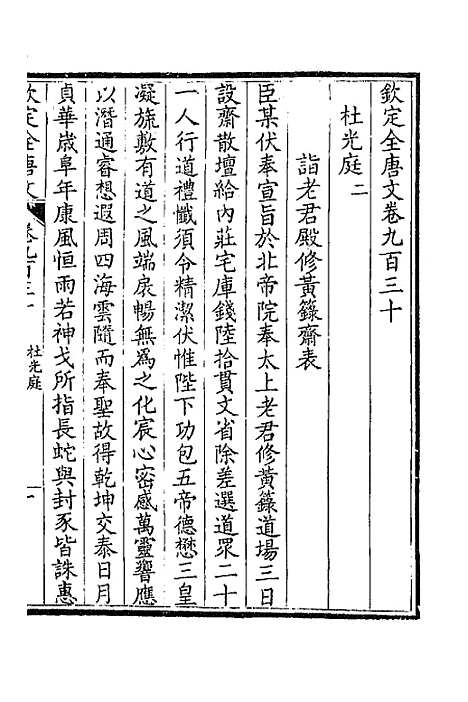 欽定全唐文卷九百三十
杜光庭二
詣老君殿修黃籙齋表
臣某伏奉宣旨於北帝院奉太上老君修黃籙道場三日
設齋散壇給內莊宅庫錢陸拾貫文省除差選道眾二十
一人行道禮懺須令精潔伏惟陛下功包五帝德懋三皇
凝旒敷有道之風端扆暢無為之化宸心密感萬靈響應
以潛通睿想遐周四海雲隨而奉聖故得乾坤交泰日月
貞華歲阜年康風恒雨若神戈所指長蛇與封豕皆誅惠
欽定全唐文
卷九百三十
杜光庭
一